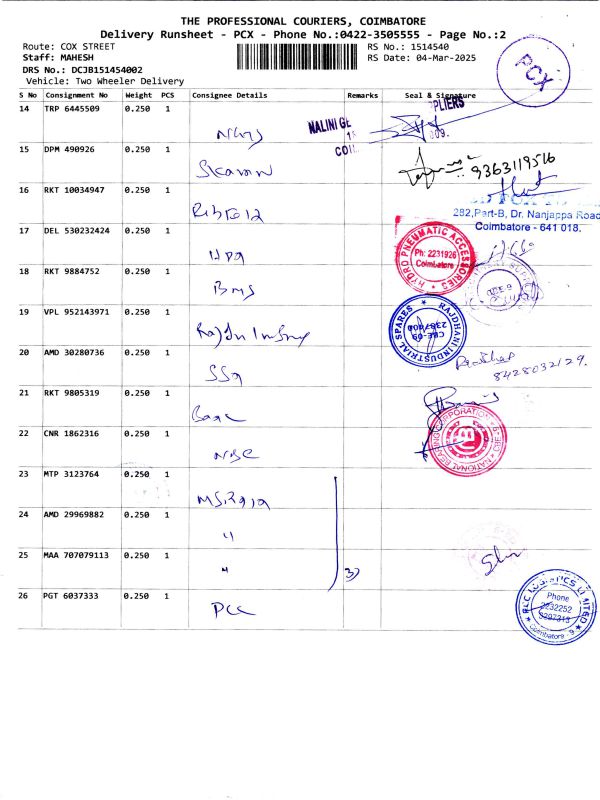 THE PROFESSIONAL COURIERS, COIMBATORE
Delivery Runsheet - PCX - Phone No.:0422-3505555 - Page No.:2
Route: COX STREET
RS No.: 1514540
Staff: MAHESH
RS Date: 04-Mar-2025
DRS No.: DCJB151454002
Vehicle: Two Wheeler Delivery
PCX
S No Consignment No Weight PCS Consignee Details Remarks Seal & Signature
14 TRP 6445509 0.250 1
NALINI GE
PLIERS
009.
15 DPM 490926 0.250 1
9363119516
16 RKT 10034947 0.250 1
282,Part-B, Dr. Nanjappa Road
Coimbatore - 641 018.
17 DEL 530232424 0.250 1
HYDRO PNEUMATIC ACCESSORIES
Ph: 2231926
Coimbatore
18 RKT 9884752 0.250 1
BMS
19 VPL 952143971 0.250 1
RAJDHANI INDUSTRIAL SPARES
CBE-09
20 AMD 30280736 0.250 1
SSA
8428032129.
21 RKT 9805319 0.250 1
22 CNR 1862316 0.250 1
NBC
NATIONAL BEARING CORPORATION
23 MTP 3123764 0.250 1
24 AMD 29969882 0.250 1
"
25 MAA 707079113 0.250 1
"
3)
26 PGT 6037333 0.250 1
PCC
LOGISTICS LIMITED
Phone
2232252
Coimbatore - 9